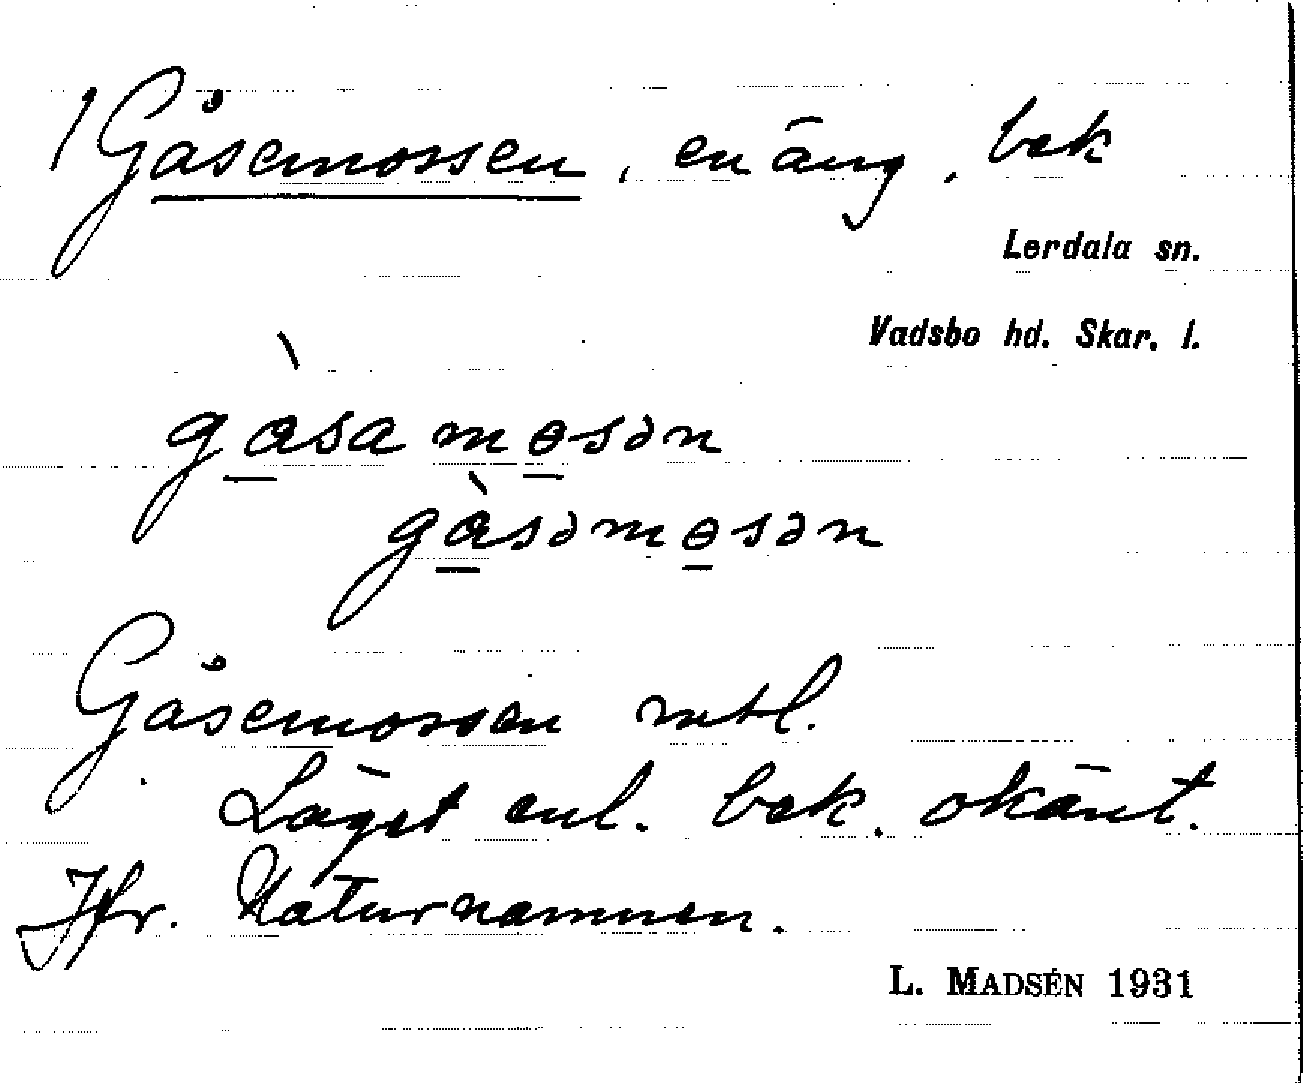 /Gåsemossen, en äng, bek
Lerdala sn.
Vadsbo hd. Skar. l.
gàsamɵsən
gàsəmɵsən
Gåsemossen mtl.
Läget enl. bek. okänt.
Jfr. Naturnamnen.
L. MADSÉN 1931